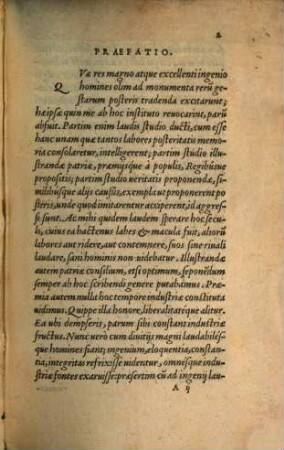 2
PRAEFATIO.
Quæ res magno atque excellenti ingenio
homines olim ad monumenta rerũ ge-
starum posteris tradenda excitarunt;
hæ ipsæ quin me ab hoc instituto reuocarint, parũ
abfuit. Partim enim laudis studio ducti, cum esse
hanc unam quæ tantos labores posteritatis memo-
ria consolaretur, intelligerent; partim studio illu-
strandæ patriæ, præmijsque à populis, Regibusque
propositis; partim studio ueritatis proponendæ, si-
milibusque alijs caussis, exempla ut proponerent po-
steris, unde quod imitarentur acciperent, id aggres-
si sunt. Ac mihi quidem laudem sperare hoc secu-
lo, cuius ea hactenus labes & macula fuit, aliorũ
labores aut ridere, aut contemnere, suos sine riuali
laudare, sani hominis non uidebatur. Illustrandæ
autem patriæ consilium, etsi optimum, seponẽdum
semper ab hoc scribendi genere putabamus. Præ-
mia autem nulla hoc tempore industriæ constituta
uidimus. Quippe illa honore, liberalitateque alitur.
Ea ubi dempseris, parum sibi constant industriæ
fructus. Nunc uerò cum diuitijs magni laudabiles-
que homines fiant; ingenium, eloquentia, constan-
tia, integritas refrixisse uidentur, omnesque indu-
striæ fontes exaruisse: præsertim cũ ad ingenij lau-
A ij